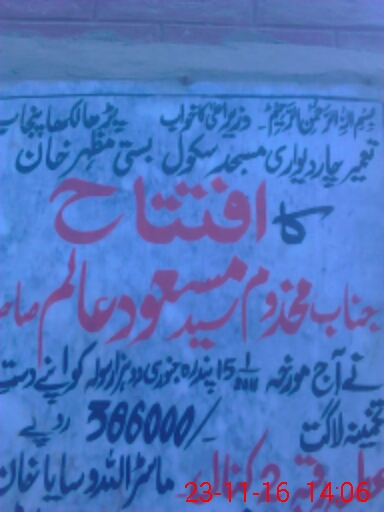 بسم اللہ الرحمن الرحیم۔ وزیراعلیٰ کا خواب پڑھا لکھا پنجاب
تعمیر چاردیواری مسجد سکول بستی مظہر خان
کا افتتاح
جناب مخدوم سید مسعود عالم
نے آج مورخہ 15 پندرہ جنوری دو ہزار سولہ کو اپنے دست
تخمینہ لاگت 366000/ روپے
رقبہ 2 کنال ماسٹر اللہ وسایا خان
23-11-16 14:06